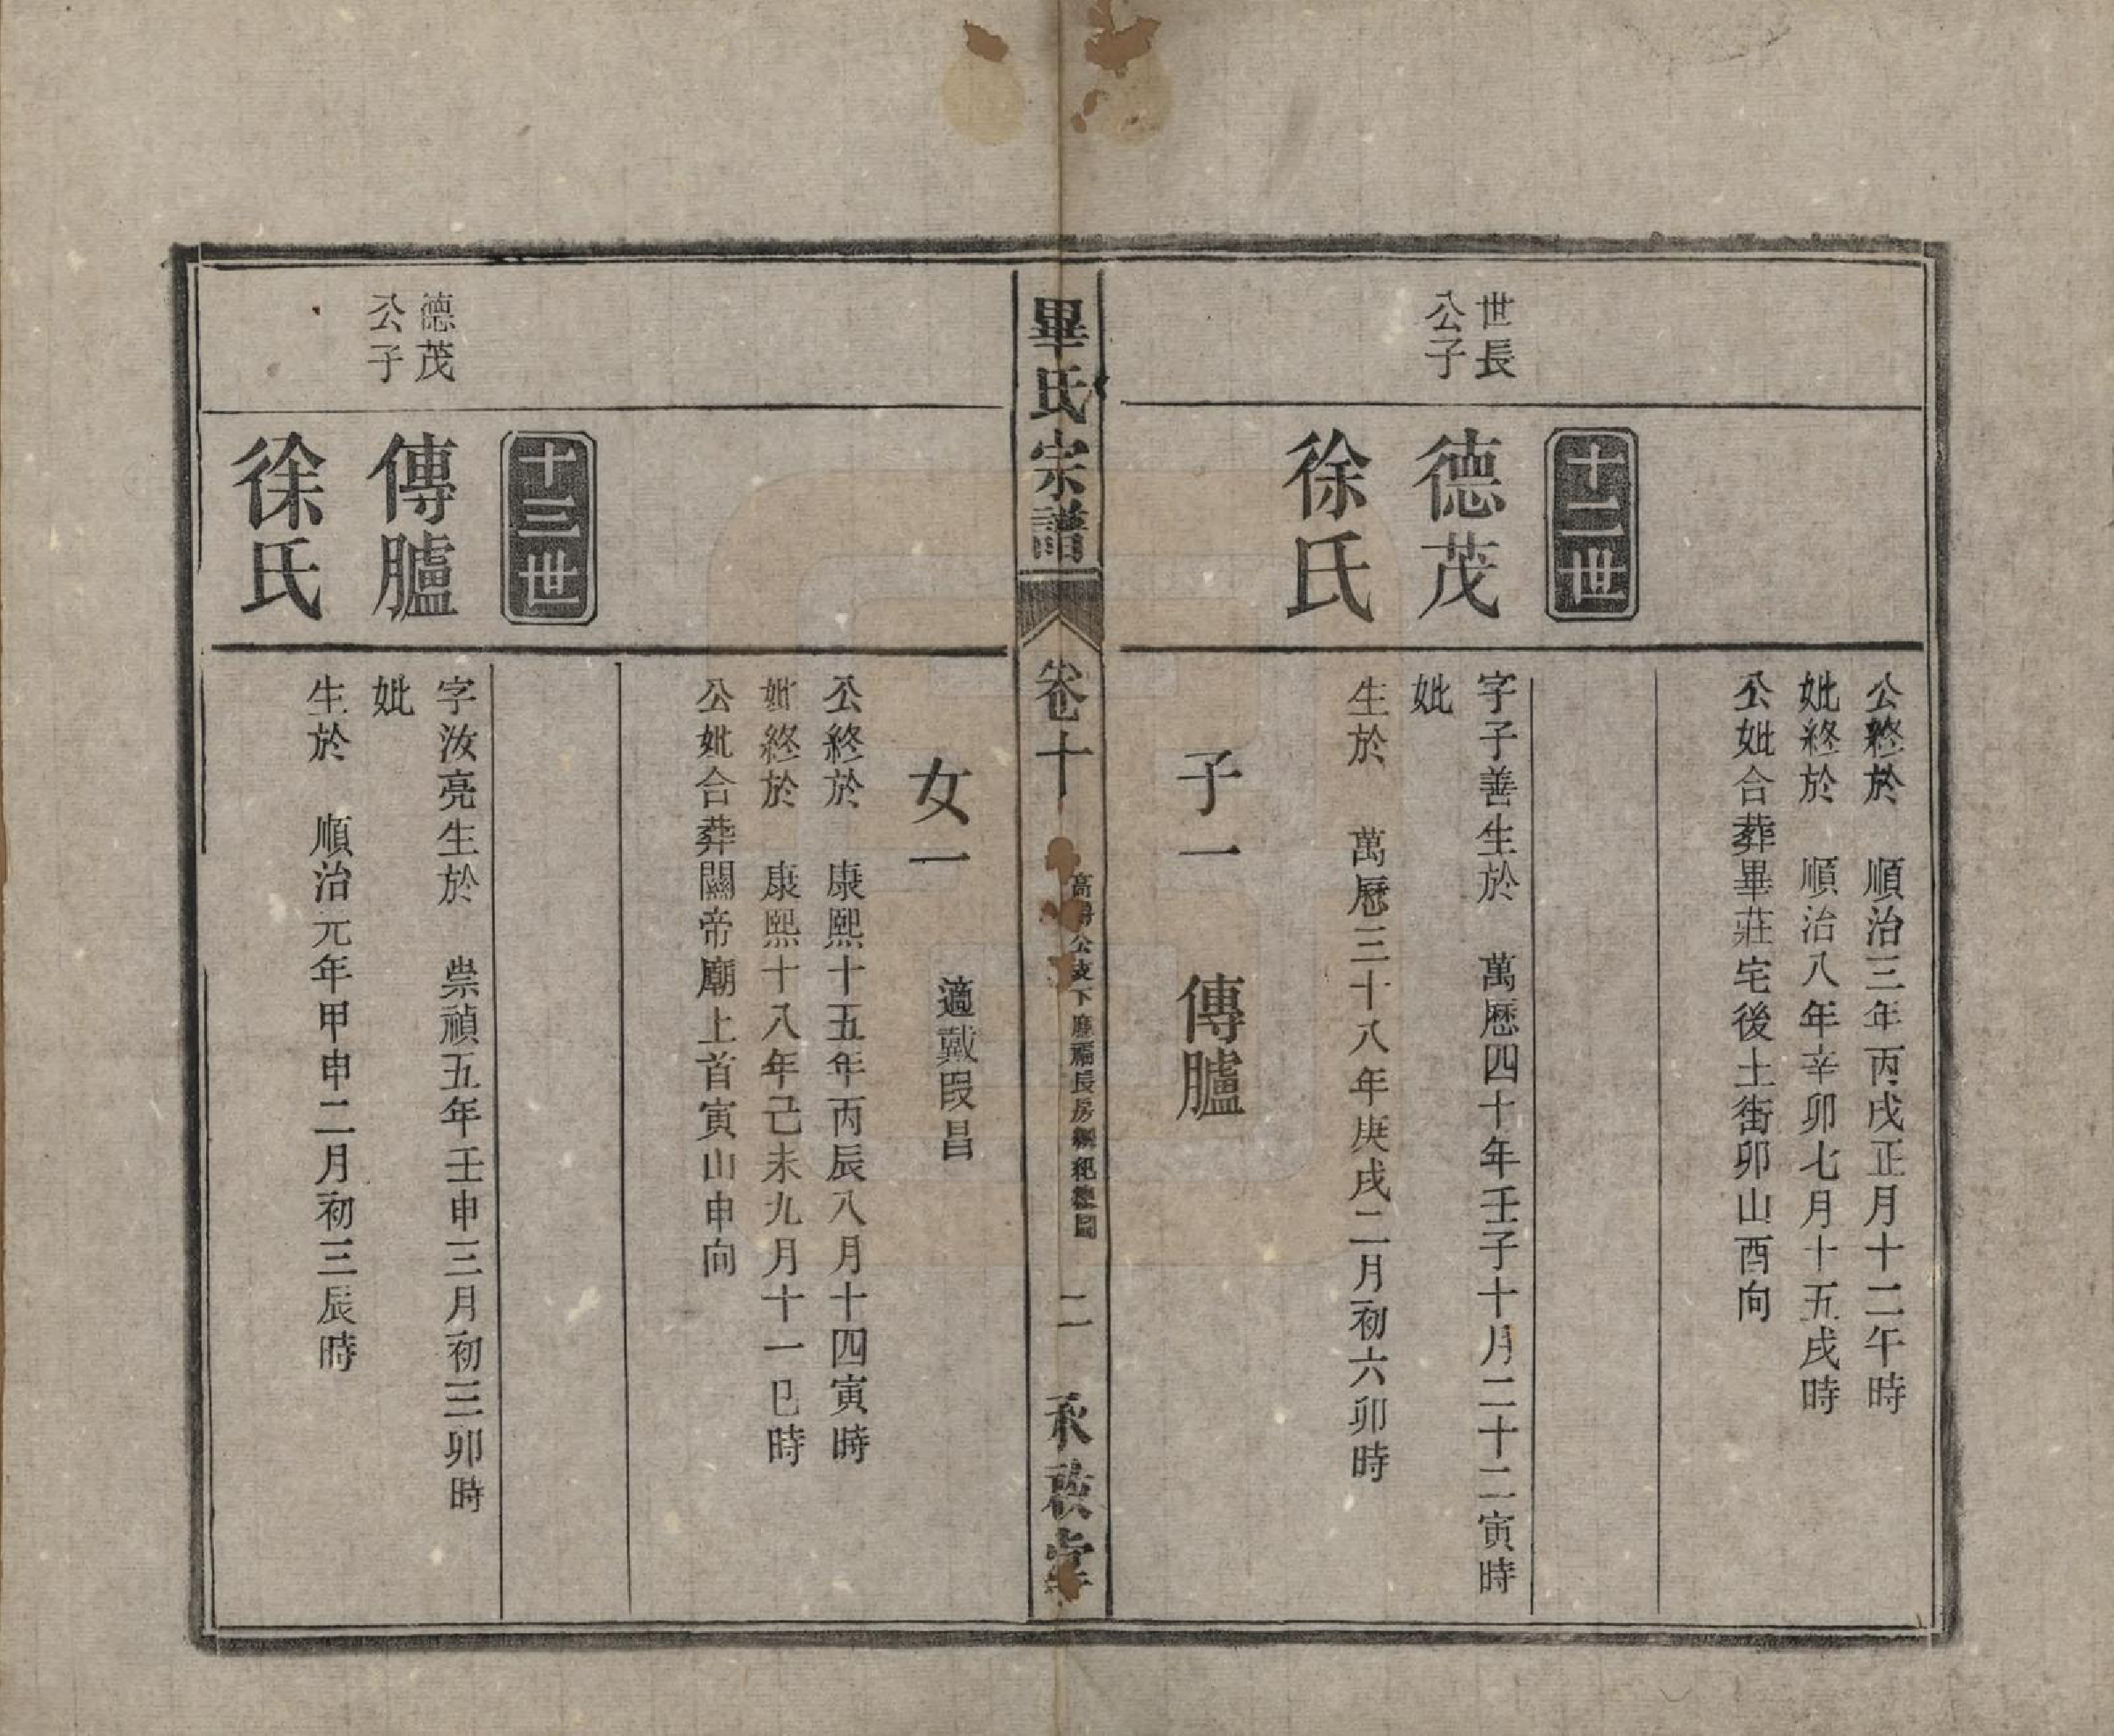 公終於　順治三年丙戌正月十二午時
妣終於　順治八年辛卯七月十五戌時
公妣合葬畢莊宅後土街卯山酉向
十二世
世長
公子
德茂
徐氏
字子善生於　萬歷四十年壬子十月二十二寅時
妣
生於　萬歷三十八年庚戌二月初六卯時
子一　傳臚
畢氏宗譜
卷十
公支下 長房 總圖
二
承 堂
女一　適戴叚昌
公終於　康熙十五年丙辰八月十四寅時
妣終於　康熙十八年己未九月十一巳時
公妣合葬關帝廟上首寅山申向
十三世
德茂
公子
傳臚
徐氏
字汝亮生於　崇禎五年壬申三月初三卯時
妣
生於　順治元年甲申二月初三辰時